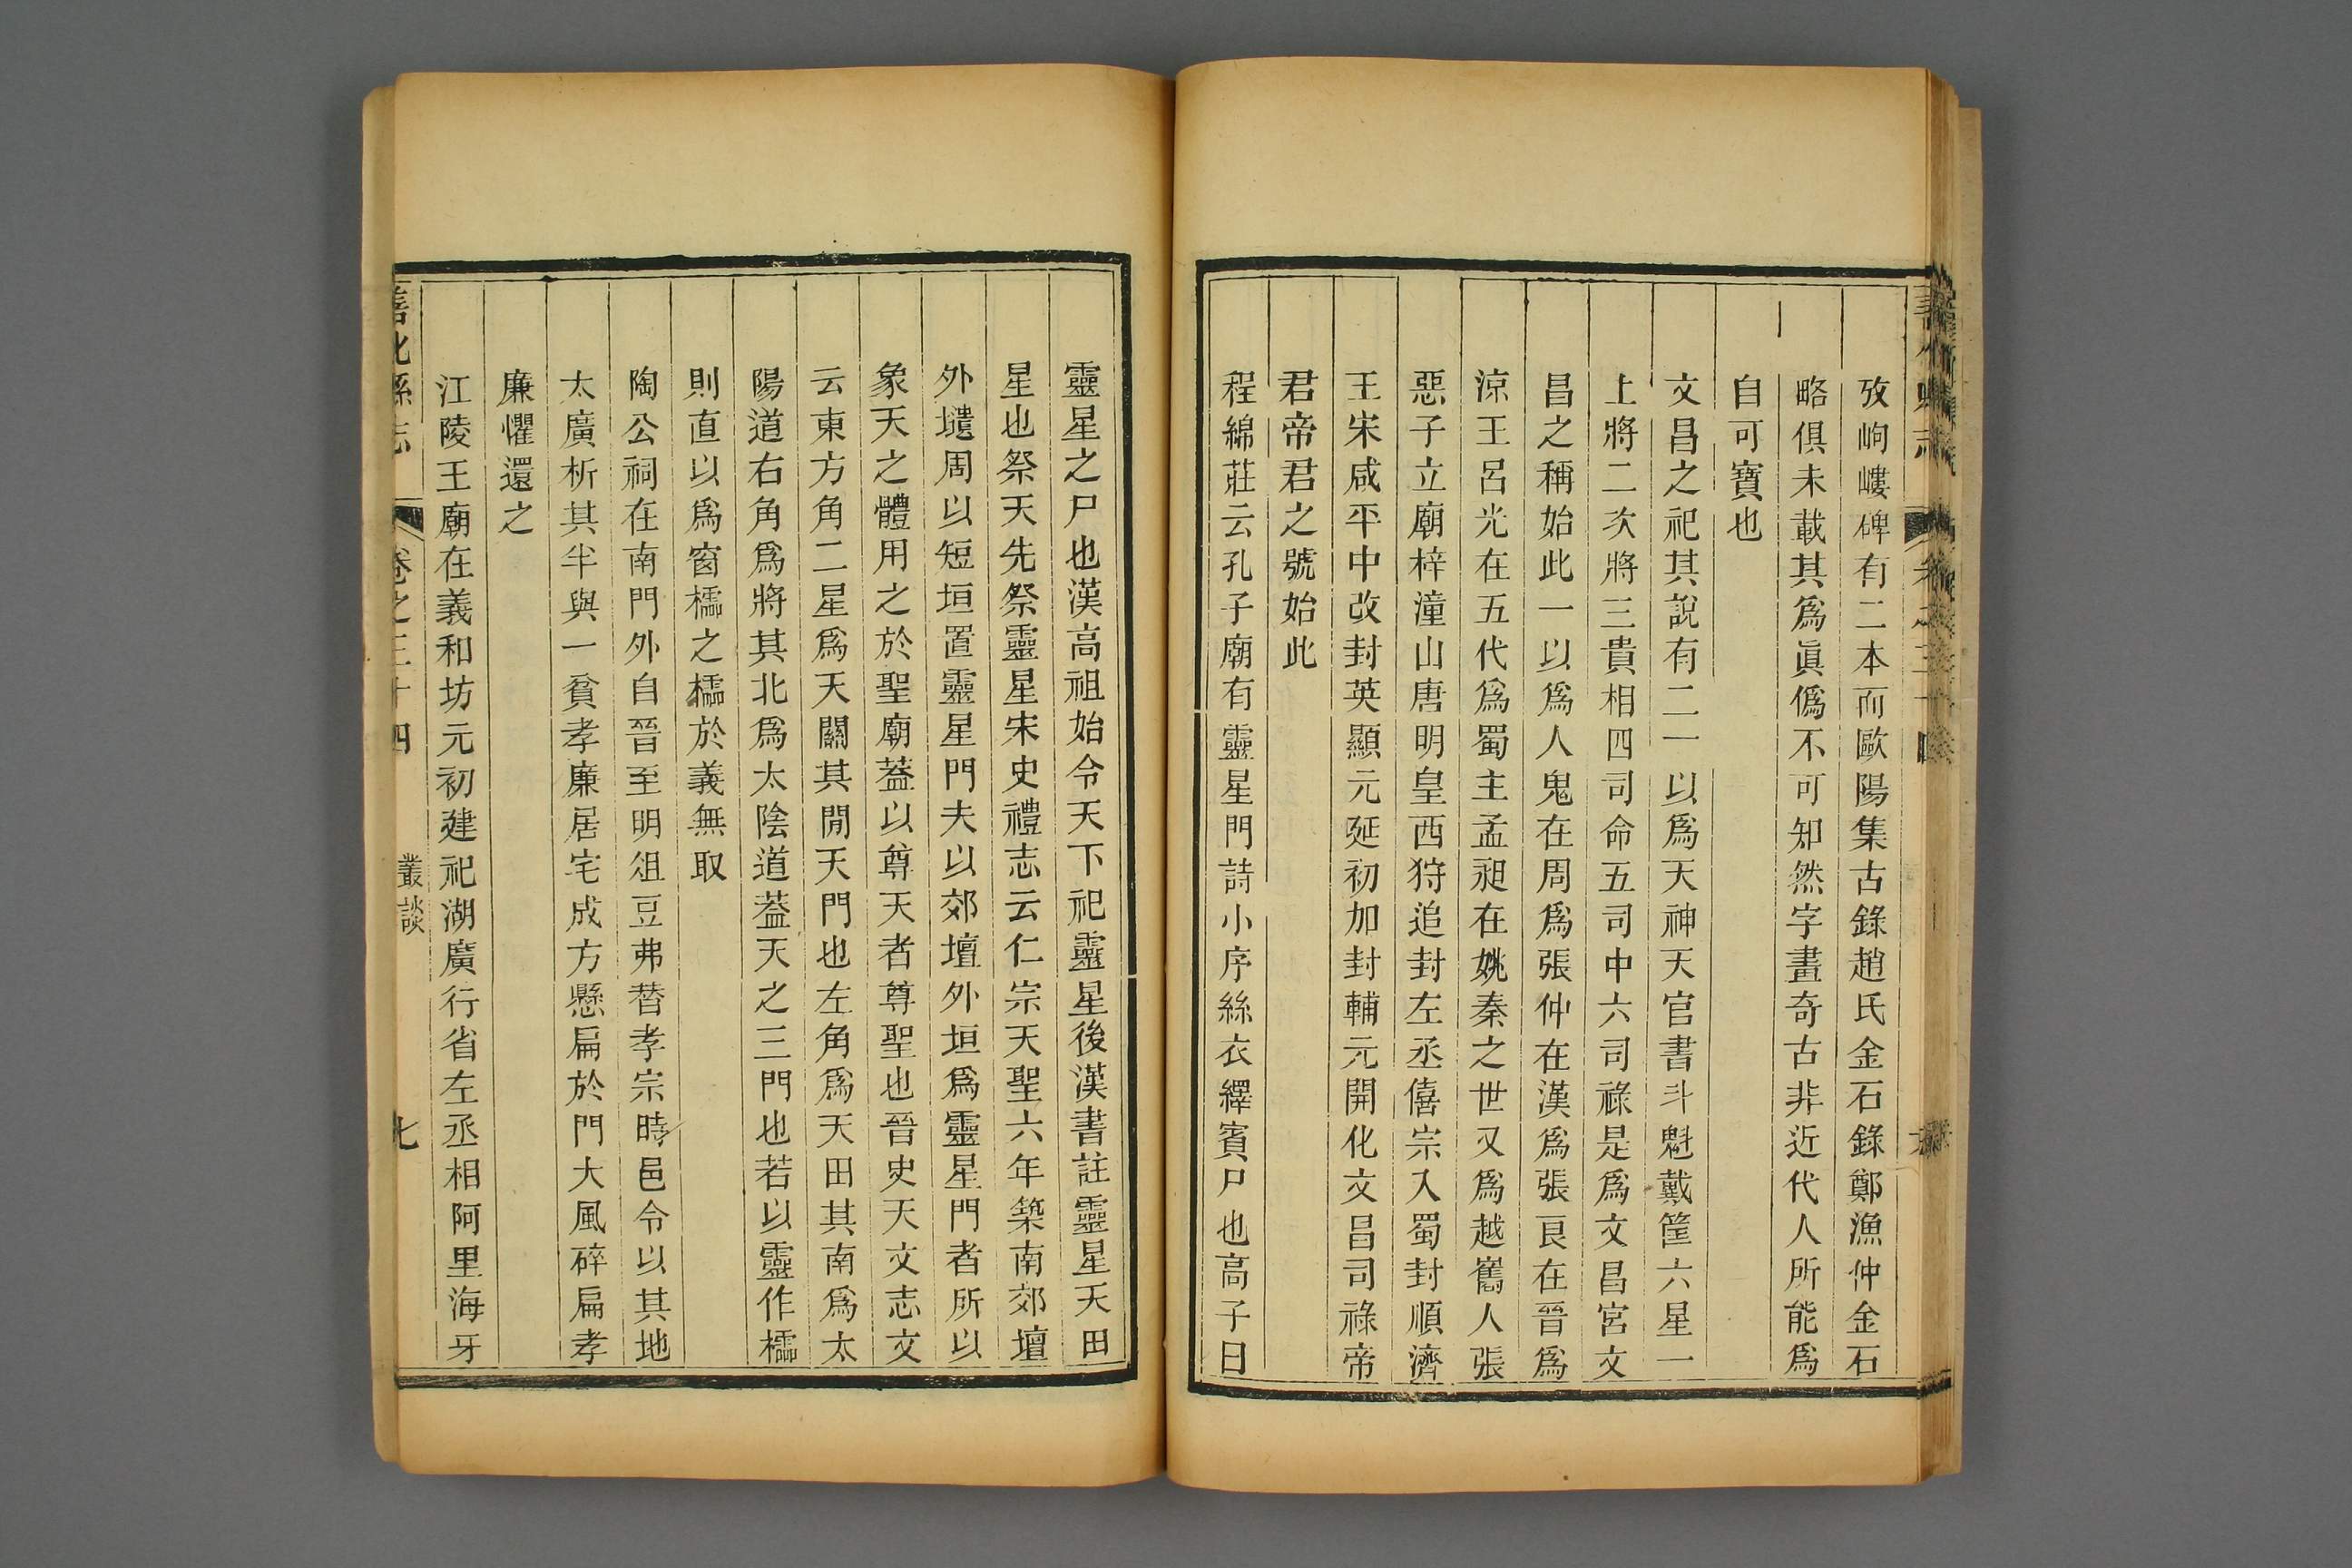 攷岣嶁碑有二本而歐陽集古錄趙氏金石錄鄭漁仲金石
略俱未載其爲眞僞不可知然字畫奇古非近代人所能爲
自可寶也
文昌之祀其說有二一以爲天神天官書斗魁戴筐六星一
上將二次將三貴相四司命五司中六司祿是爲文昌宮文
昌之稱始此一以爲人鬼在周爲張仲在漢爲張良在晉爲
涼王呂光在五代爲蜀主孟昶在姚秦之世又爲越嶲人張
惡子立廟梓潼山唐明皇西狩追封左丞僖宗入蜀封順濟
王宋咸平中改封英顯元延初加封輔元開化文昌司祿帝
君帝君之號始此
程綿莊云孔子廟有靈星門詩小序絲衣繹賓尸也高子曰
靈星之尸也漢高祖始令天下祀靈星後漢書註靈星天田
星也祭天先祭靈星宋史禮志云仁宗天聖六年築南郊壇
外壝周以短垣置靈星門夫以郊壇外垣爲靈星門者所以
象天之體用之於聖廟葢以尊天者尊聖也晉史天文志文
云東方角二星爲天關其閒天門也左角爲天田其南爲太
陽道右角爲將其北爲太陰道葢天之三門也若以靈作櫺
則直以爲窗櫺之櫺於義無取
陶公祠在南門外自晉至明俎豆弗替孝宗時邑令以其地
太廣析其半與一貧孝廉居宅成方懸扁於門大風碎扁孝
廉懼還之
江陵王廟在義和坊元初建祀湖廣行省左丞相阿里海牙
善化縣志 卷之三十四 叢談 七